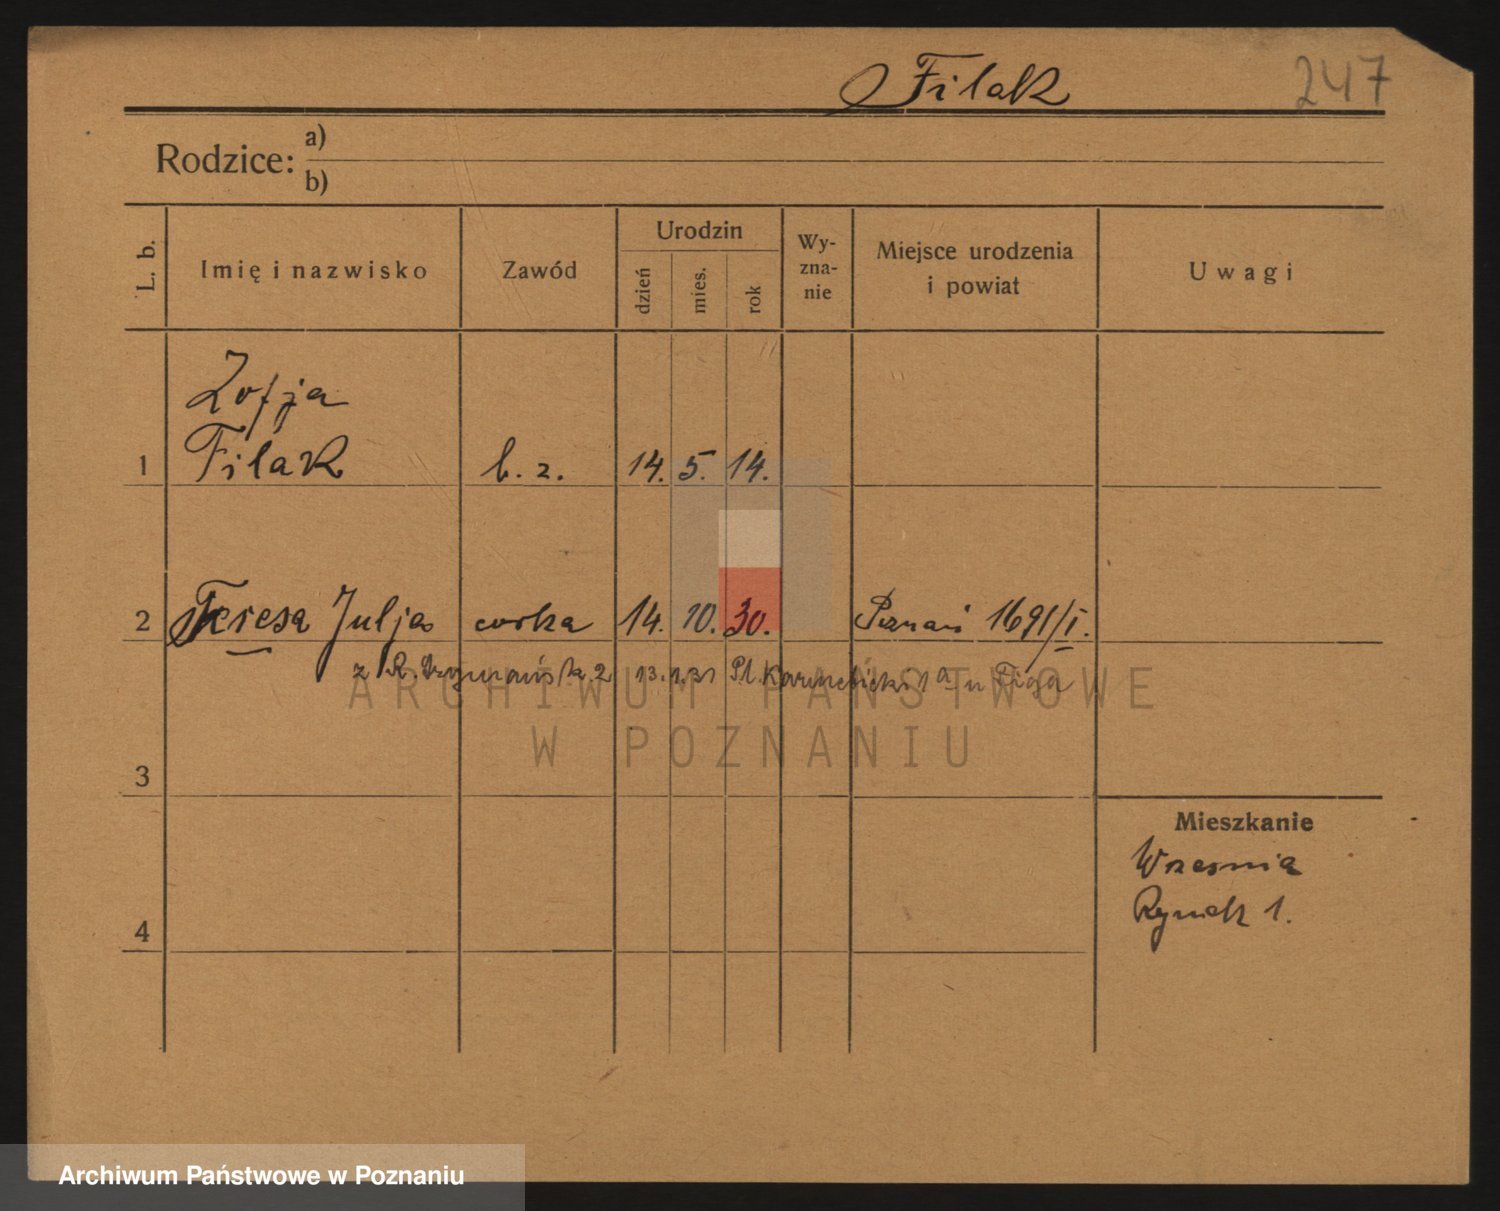 Filak
247
Rodzice:
a)
b)
L. b.
Imię i nazwisko
Zawód
Urodzin
dzień
mies.
rok
Wy-
zna-
nie
Miejsce urodzenia
i powiat
Uwagi
Zofja
1 Filak b. z. 14. 5. 14.
2 Teresa Julja córka 14. 10. 30. Poznań 1691/I.
z R. 2 13.1.31 Pl. 1a u Figa
ARCHIWUM PAŃSTWOWE
W POZNANIU
3
Mieszkanie
Wrzesnia
Rynek 1.
4
Archiwum Państwowe w Poznaniu